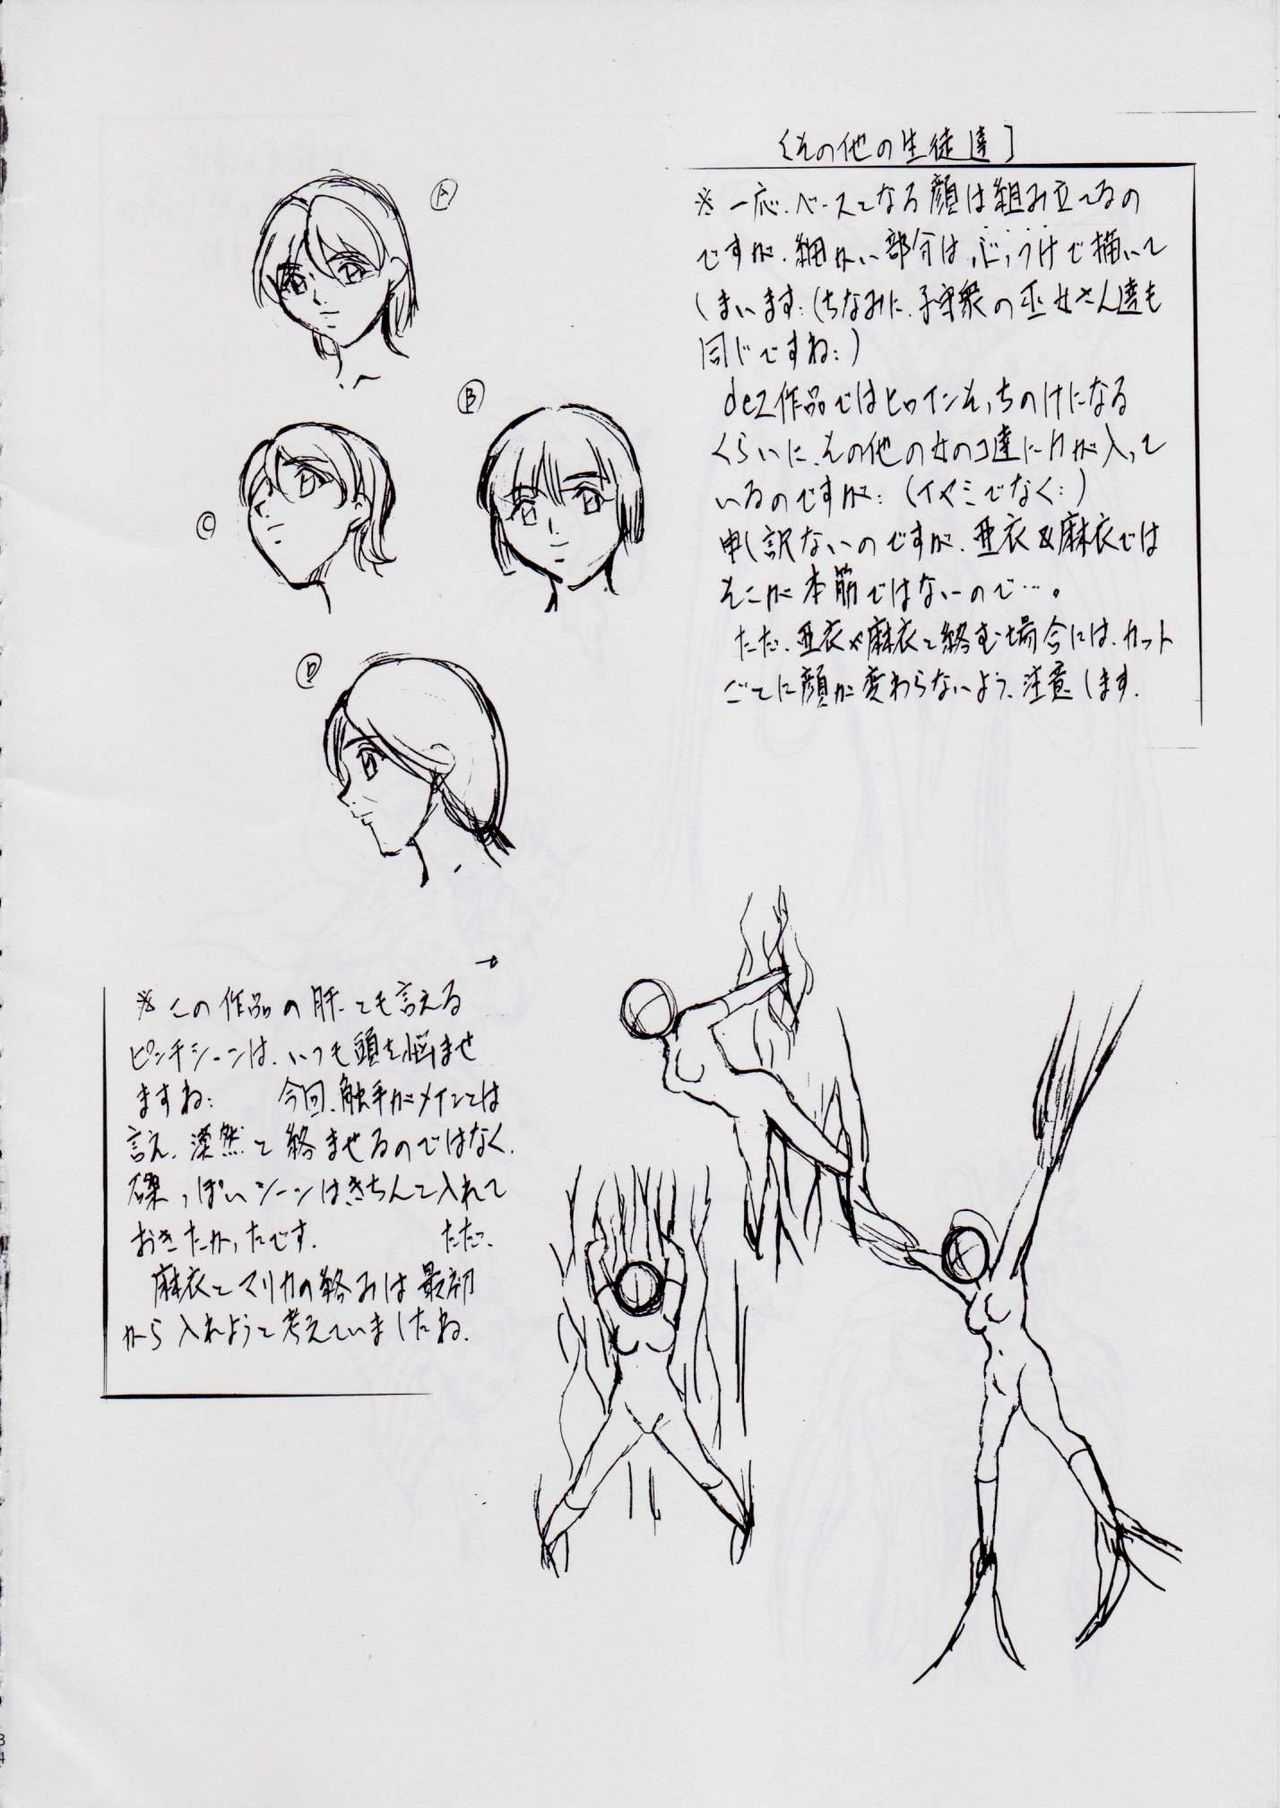 〔その他の生徒達〕
※一応、ベースとなる顔は組み立てるの
ですが、細かい部分は、ぶっつけで描いて
しまいます:(ちなみに、子守衆の巫女さん達も
同じですね:)
dez作品ではヒロインそっちのけになる
くらいに、その他の女のコ達に力が入って
いるのですが:(イヤミでなく:)
申し訳ないのですが、亜衣&麻衣では
そこが本筋ではないので…。
ただ、亜衣や麻衣と絡む場合には、カット
ごとに顔が変わらないよう、注意します.
A
B
C
D
※この作品の肝とも言える
ピンチシーンは、いつも頭を悩ませ
ますね: 今回、触手がメインとは
言え、漠然と絡ませるのではなく、
磔っぽいシーンはきちんと入れて
おきたかったです. ただ、
麻衣とマリカの絡みは最初
から入れようと考えていましたね.
34